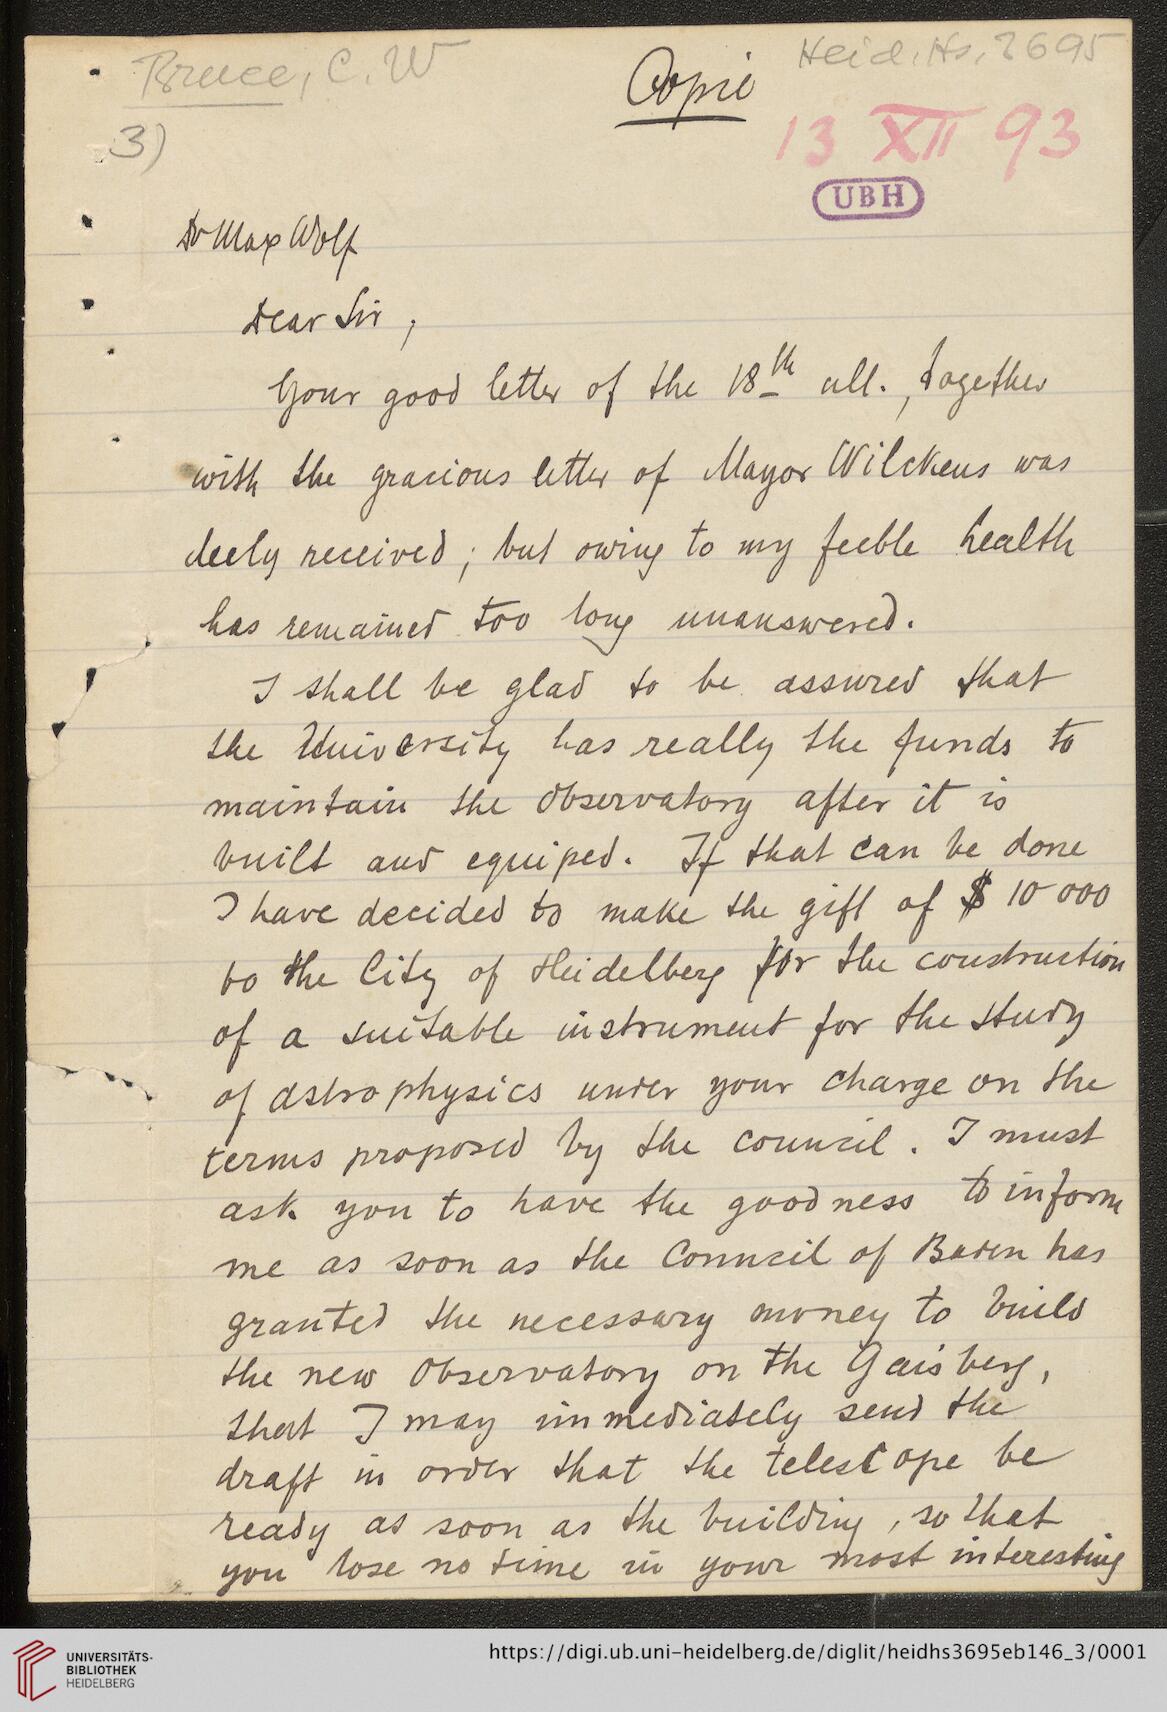 Bruce, C. W
Copie
Heid. Hs. 3695
3)
13 XII 93
UBH
Dr Max Wolf
Dear Sir,
Your good letter of the 18th ult., together
with the gracious letter of Mayor Wilckens was
duely received; but owing to my feeble health
has remained too long unanswered.
I shall be glad to be assured that
the University has really the funds to
maintain the Observatory after it is
built and equiped. If that can be done
I have decided to make the gift of $ 10 000
to the City of Heidelberg for the construction
of a suitable instrument for the study
of astrophysics under your charge on the
terms proposed by the council. I must
ask you to have the goodness to inform
me as soon as the Council of Baden has
granted the necessary money to build
the new Observatory on the Gaisberg,
that I may immediately send the
draft in order that the telescope be
ready as soon as the building, so that
you lose no time in your most interesting
UNIVERSITÄTS-
BIBLIOTHEK
HEIDELBERG
https://digi.ub.uni-heidelberg.de/diglit/heidhs3695eb146_3/0001